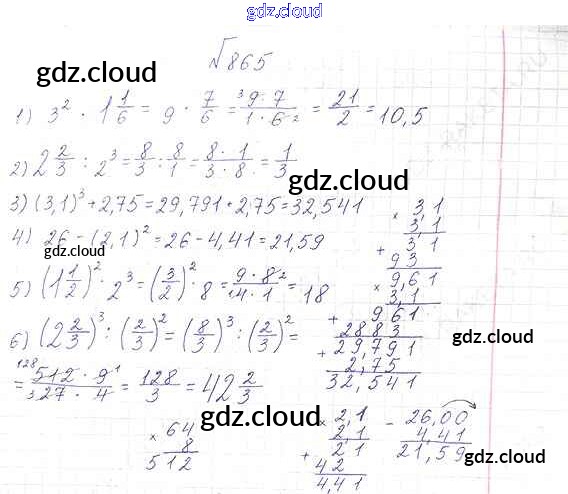 gdz.cloud
№865
gdz.cloud
1) 3² · 1 1/6 = 9 · 7/6 = 9·7/1·6 = 21/2 = 10,5
gdz.cloud
2) 2 2/3 : 2³ = 8/3 : 8/1 = 8·1/3·8 = 1/3
gdz.cloud
3) (3,1)³ + 2,75 = 29,791 + 2,75 = 32,541
4) 26 - (2,1)² = 26 - 4,41 = 21,59
gdz.cloud
5) (1 1/2)² · 2³ = (3/2)² · 8 = 9·8/4·1 = 18
6) (2 2/3)³ : (2/3)² = (8/3)³ : (2/3)² =
= 512·9/27·4 = 128/3 = 42 2/3
× 3,1
3,1
+ 3 1
9 3
× 9,61
3,1
+ 9 6 1
2 8 8 3
+ 29,791
2,75
32,541
gdz.cloud
gdz.cloud
× 64
8
512
× 2,1
2,1
+ 2 1
4 2
4,41
- 26,00
4,41
21,59
gdz.cloud